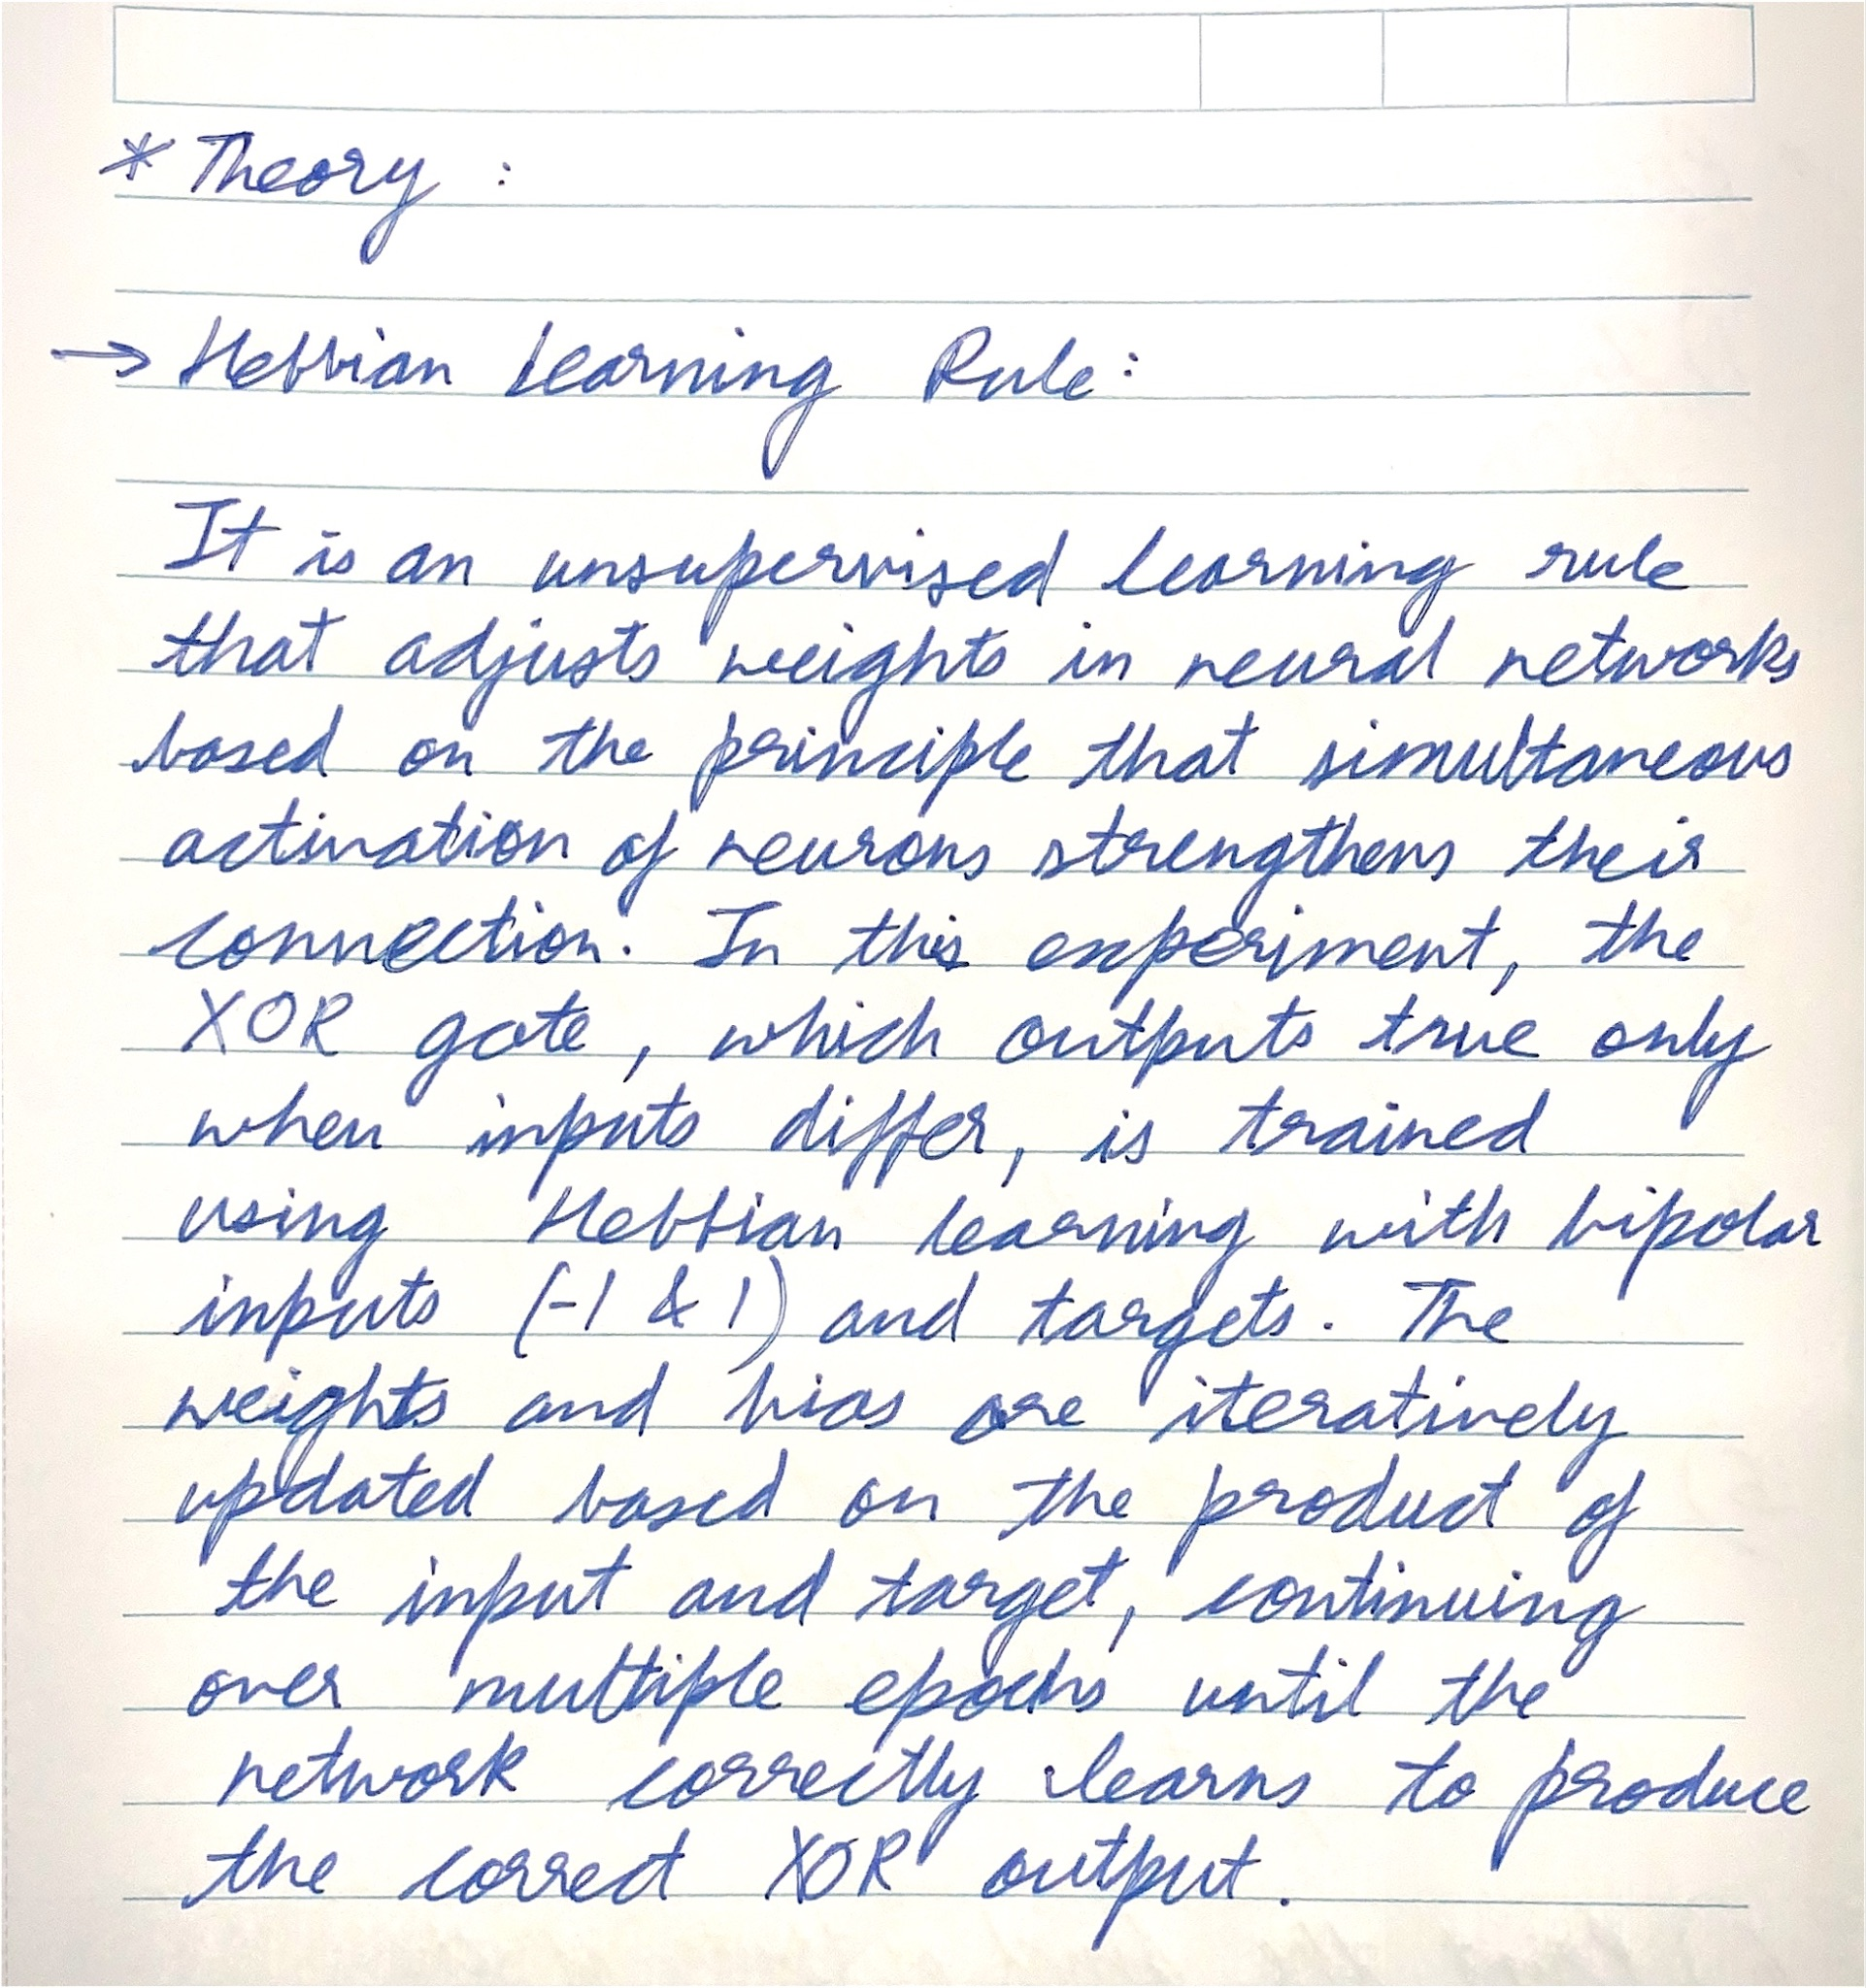 * Theory :
→ Hebbian Learning Rule:
It is an unsupervised learning rule
that adjusts weights in neural networks
based on the principle that simultaneous
activation of neurons strengthens their
connection. In this experiment, the
XOR gate, which outputs true only
when inputs differ, is trained
using Hebbian learning with bipolar
inputs (-1 & 1) and targets. The
weights and bias are iteratively
updated based on the product of
the input and target, continuing
over multiple epochs until the
network correctly learns to produce
the correct XOR output.